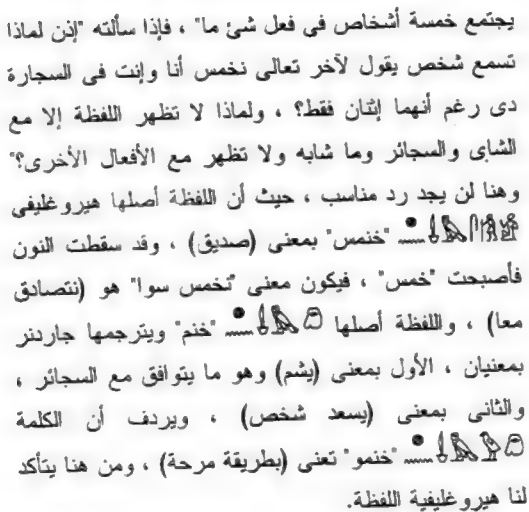 يجتمع خمسة أشخاص في فعل شئ ما" ، فإذا سألته "إذن لماذا
تسمع شخص يقول لآخر تعالى نخمس أنا وإنت فى السجارة
دى رغم أنهما إثنان فقط؟ ، ولماذا لا تظهر اللفظة إلا مع
الشاى والسجائر وما شابه ولا تظهر مع الأفعال الأخرى؟"
وهنا لن يجد رد مناسب ، حيث أن اللفظة أصلها هيروغليفى
"خنمس" بمعنى (صديق) ، وقد سقطت النون
فأصبحت "خمس" ، فيكون معنى "نخمس سوا" هو (نتصادق
معا) ، واللفظة أصلها "خنم" ويترجمها جاردنر
بمعنيان ، الأول بمعنى (يشم) وهو ما يتوافق مع السجائر ،
والثانى بمعنى (يسعد شخص) ، ويردف أن الكلمة
"خنمو" تعنى (بطريقة مرحة) ، ومن هنا يتأكد
لنا هيروغليفية اللفظة.